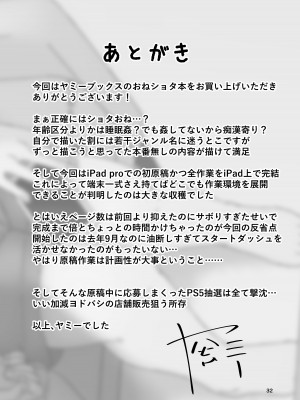 あとがき
今回はヤミーブックスのおねショタ本をお買い上げいただき
ありがとうございます！
まぁ正確にはショタおね…？
年齢区分よりかは睡眠姦？でも姦してないから痴漢寄り？
自分で描いた割には若干ジャンル名に迷うとこですが
ずっと描こうと思ってた本番無しの内容が描けて満足
そして今回はiPad proでの初原稿かつ全作業をiPad上で完結
これによって端末一式さえ持てばどこでも作業環境を展開
できることが判明したのは大きな収穫でした
とはいえページ数は前回より抑えたのにサボりすぎたせいで
完成まで倍とちょっとの時間かけちゃったのが今回の反省点
開始したのは去年9月なのに油断しすぎてスタートダッシュを
活かせなかったのがもったいない…
やはり原稿作業は計画性が大事ということ……
そしてそんな原稿中に応募しまくったPS5抽選は全て撃沈…
いい加減ヨドバシの店舗販売狙う所存
以上、ヤミーでした
ヤミー
32